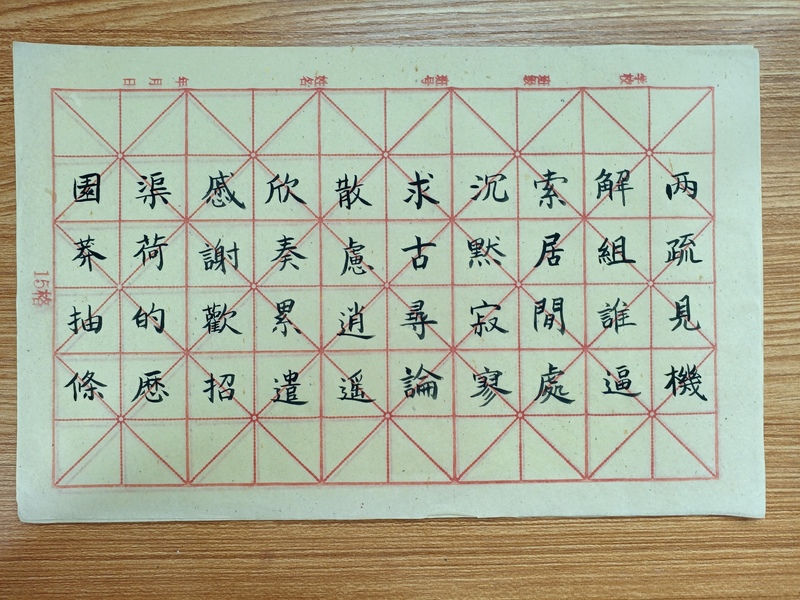 学校 班級 班号 姓名 年 月 日
两疏見機
解組誰逼
索居閒處
沉默寂寥
求古尋論
散慮逍遥
欣奏累遣
慼謝歡招
渠荷的歷
園莽抽條
15格